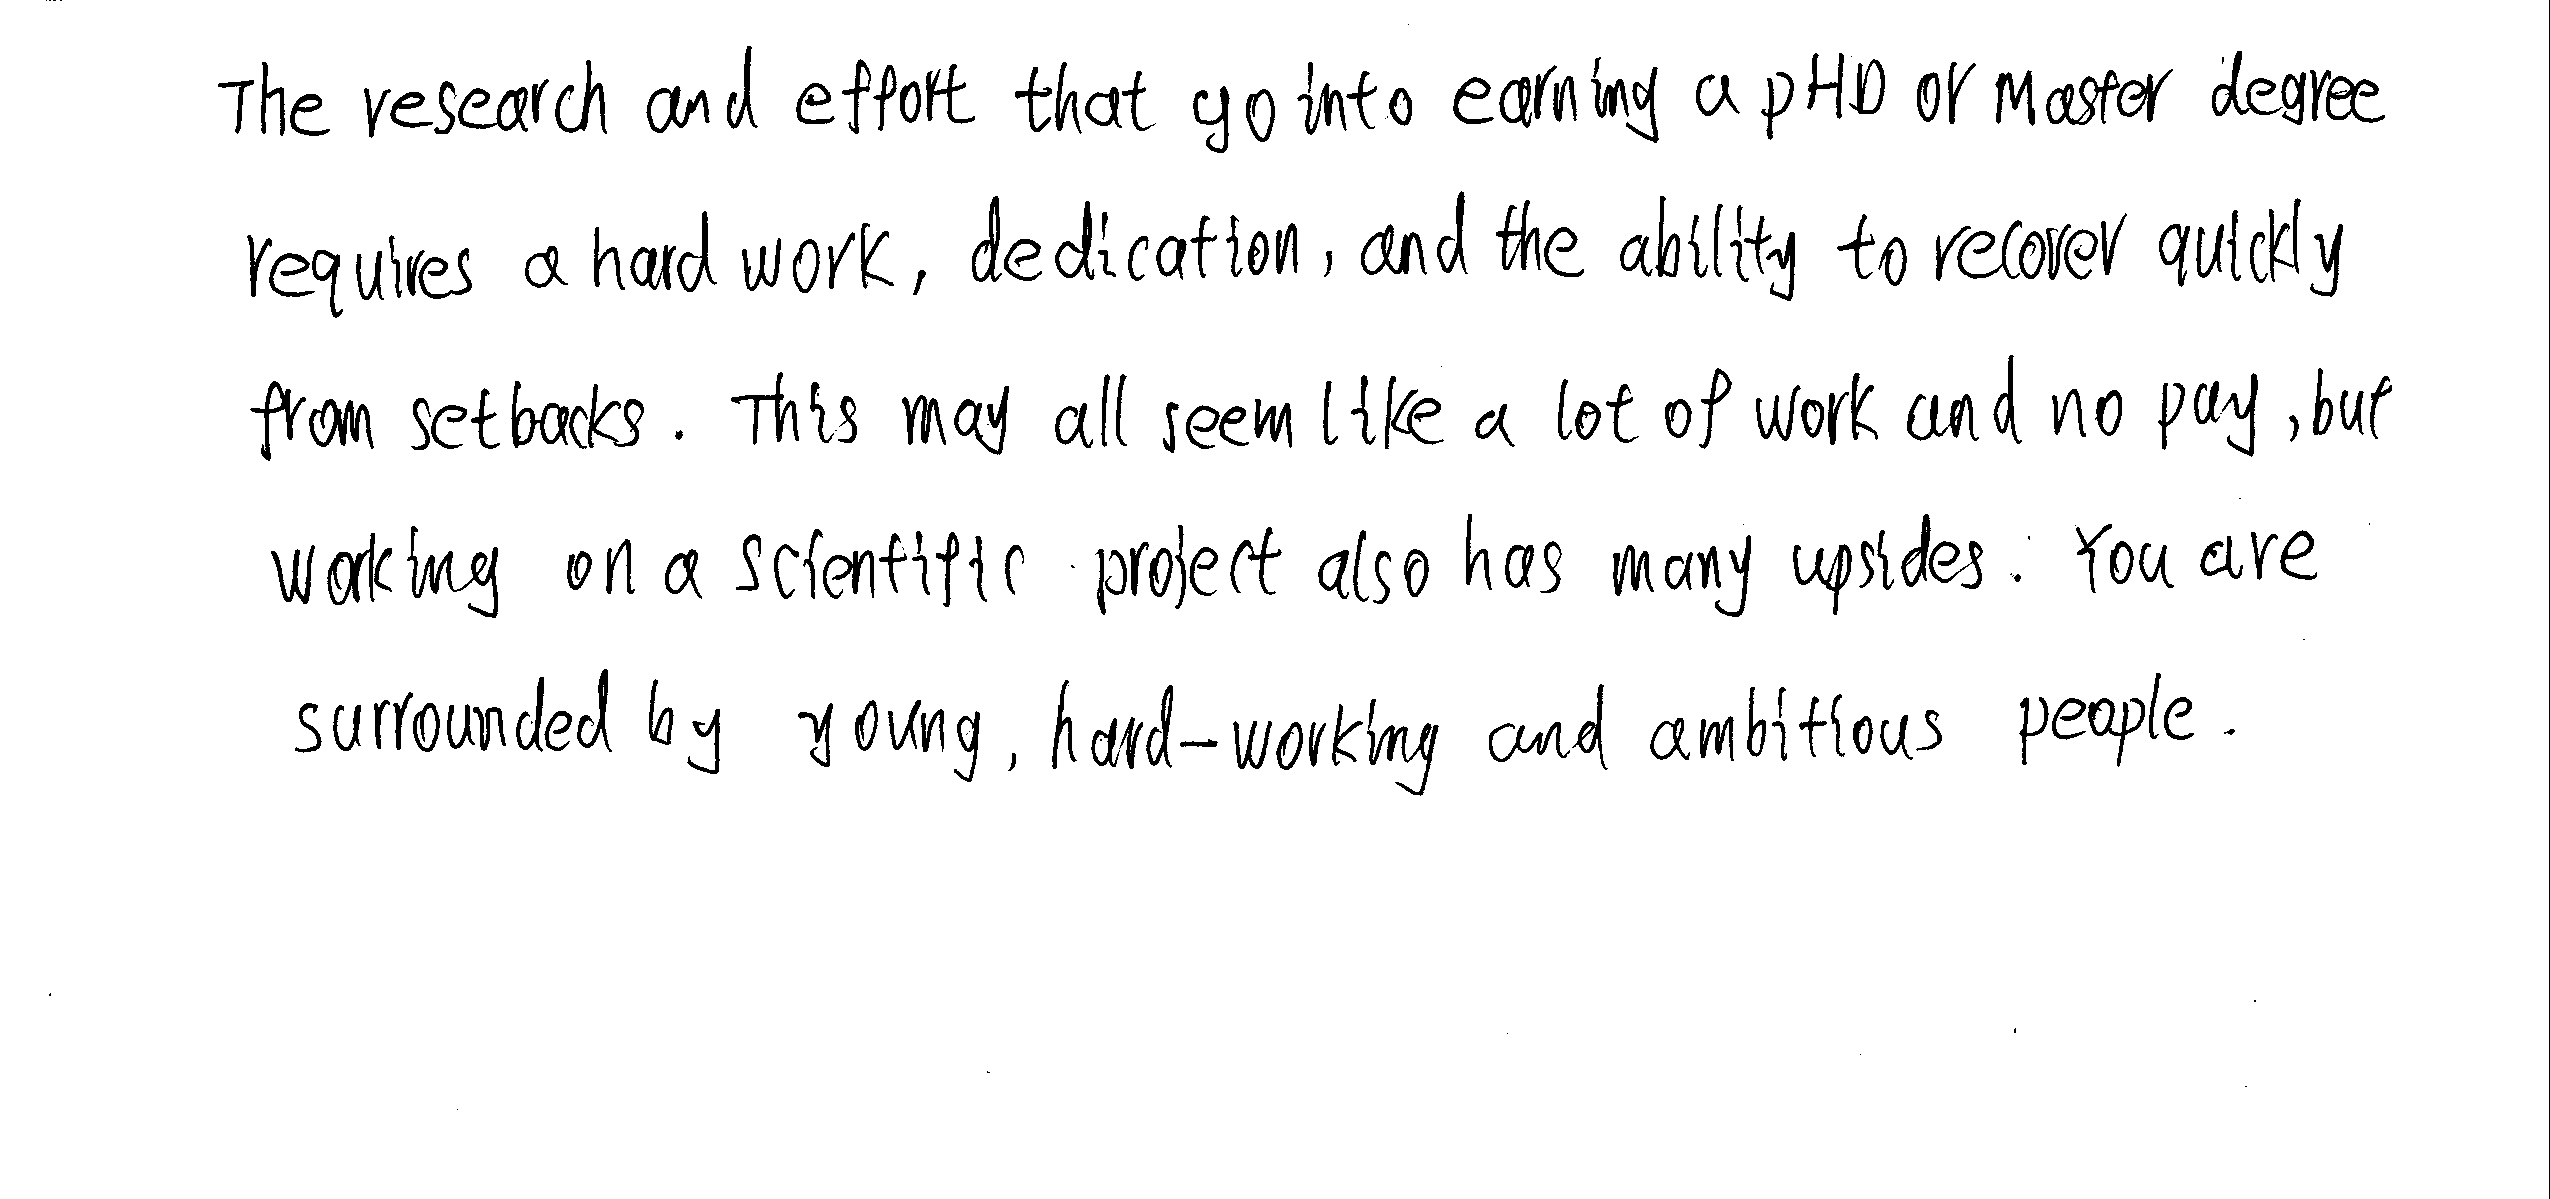 The research and effort that go into earning a pHD or Master degree
requires a hard work, dedication, and the ability to recover quickly
from setbacks. This may all seem like a lot of work and no pay, but
working on a scientific project also has many upsides. You are
surrounded by young, hard-working and ambitious people.